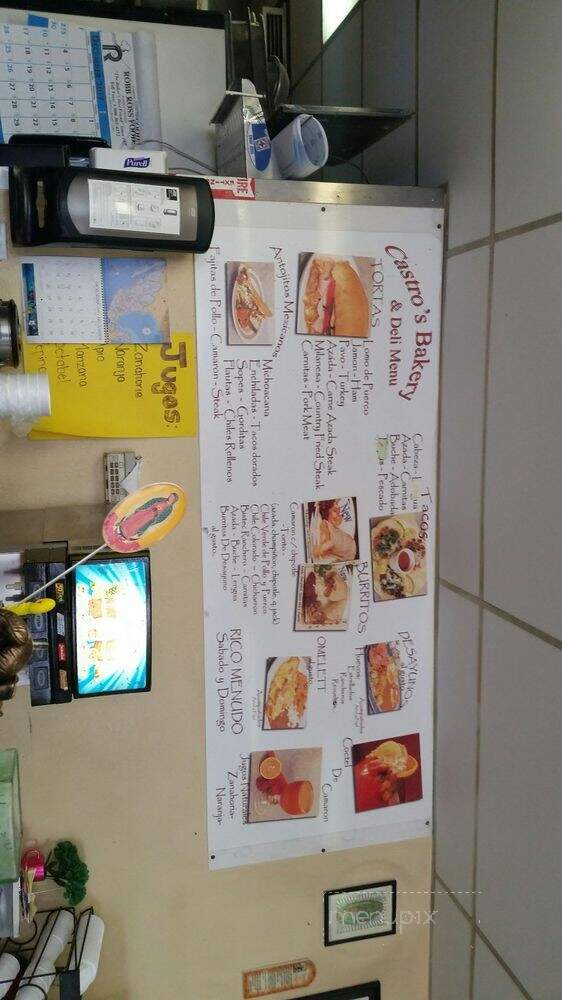 Castro's Bakery
& Deli Menu
TORTAS
Lomo de Puerco
Jamon - Ham
Pavo - Turkey
Azada - Carne Azada Steak
Milanesa - Country Fried Steak
Carnitas - Pork Meat
Antojitos Mexicanos
Michoacana
Enchiladas - Tacos dorados
Sopes - Gorditas
Flautas - Chiles Rellenos
Fajitas de Pollo - Camaron - Steak
Tacos
Cabeza -
Azada - Carnitas
Buche - Adobada
- Pescado
BURRITOS
New
Camaron c/ chipotle
- Tonto -
Chile Verde de Pollo y Puerco
Chile Colorado - Chicharron
Bistec Ranchero - Carnitas
Azada - Buche - Lengua
Burritos De Desayuno
al gusto.
DESAYUNO
al gusto
Huevos
Estrellados
Rancheros
OMELETT
al gusto
RICO MENUDO
Sabado y Domingo
Coctel
De
Camaron
Jugos Naturales
Zanahoria-
Naranja-
Jugos:
Zanahoria
Naranja
Manzana
ROBB ROSS FOODS
Purell
FIRE
menupix